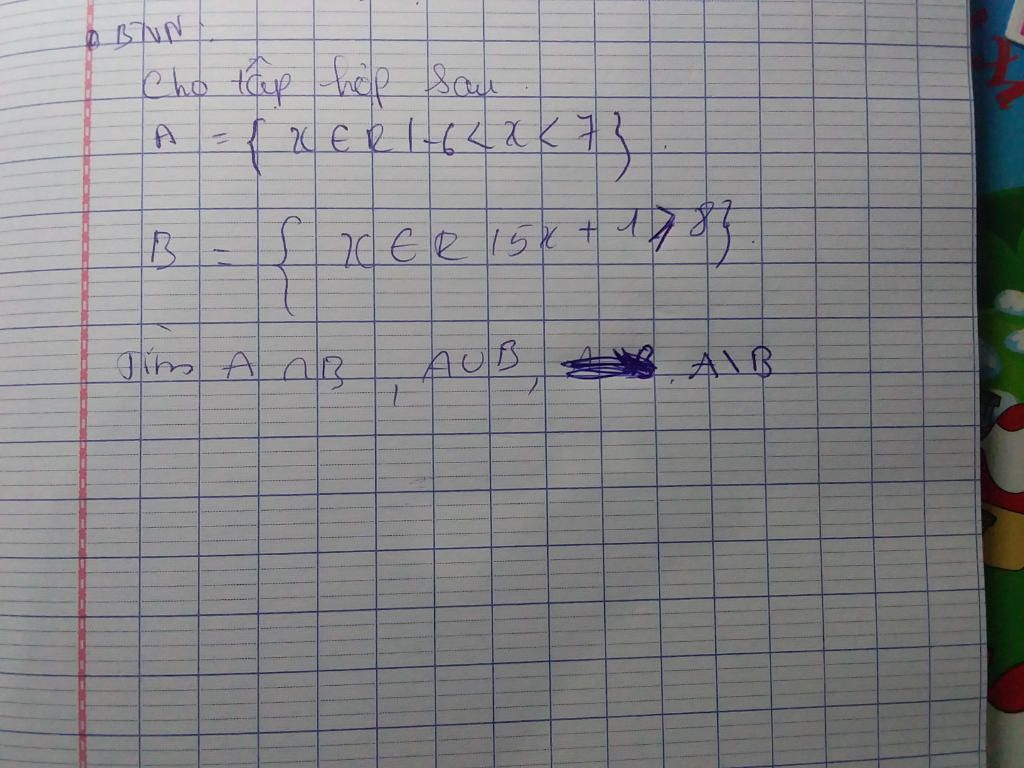 BTVN:
Cho tập hợp sau.
A = { x ∈ R | -6 < x < 7 }.
B = { x ∈ R | 5x + 1 ⩾ 8 }.
Tìm A ∩ B , A ∪ B , A \ B